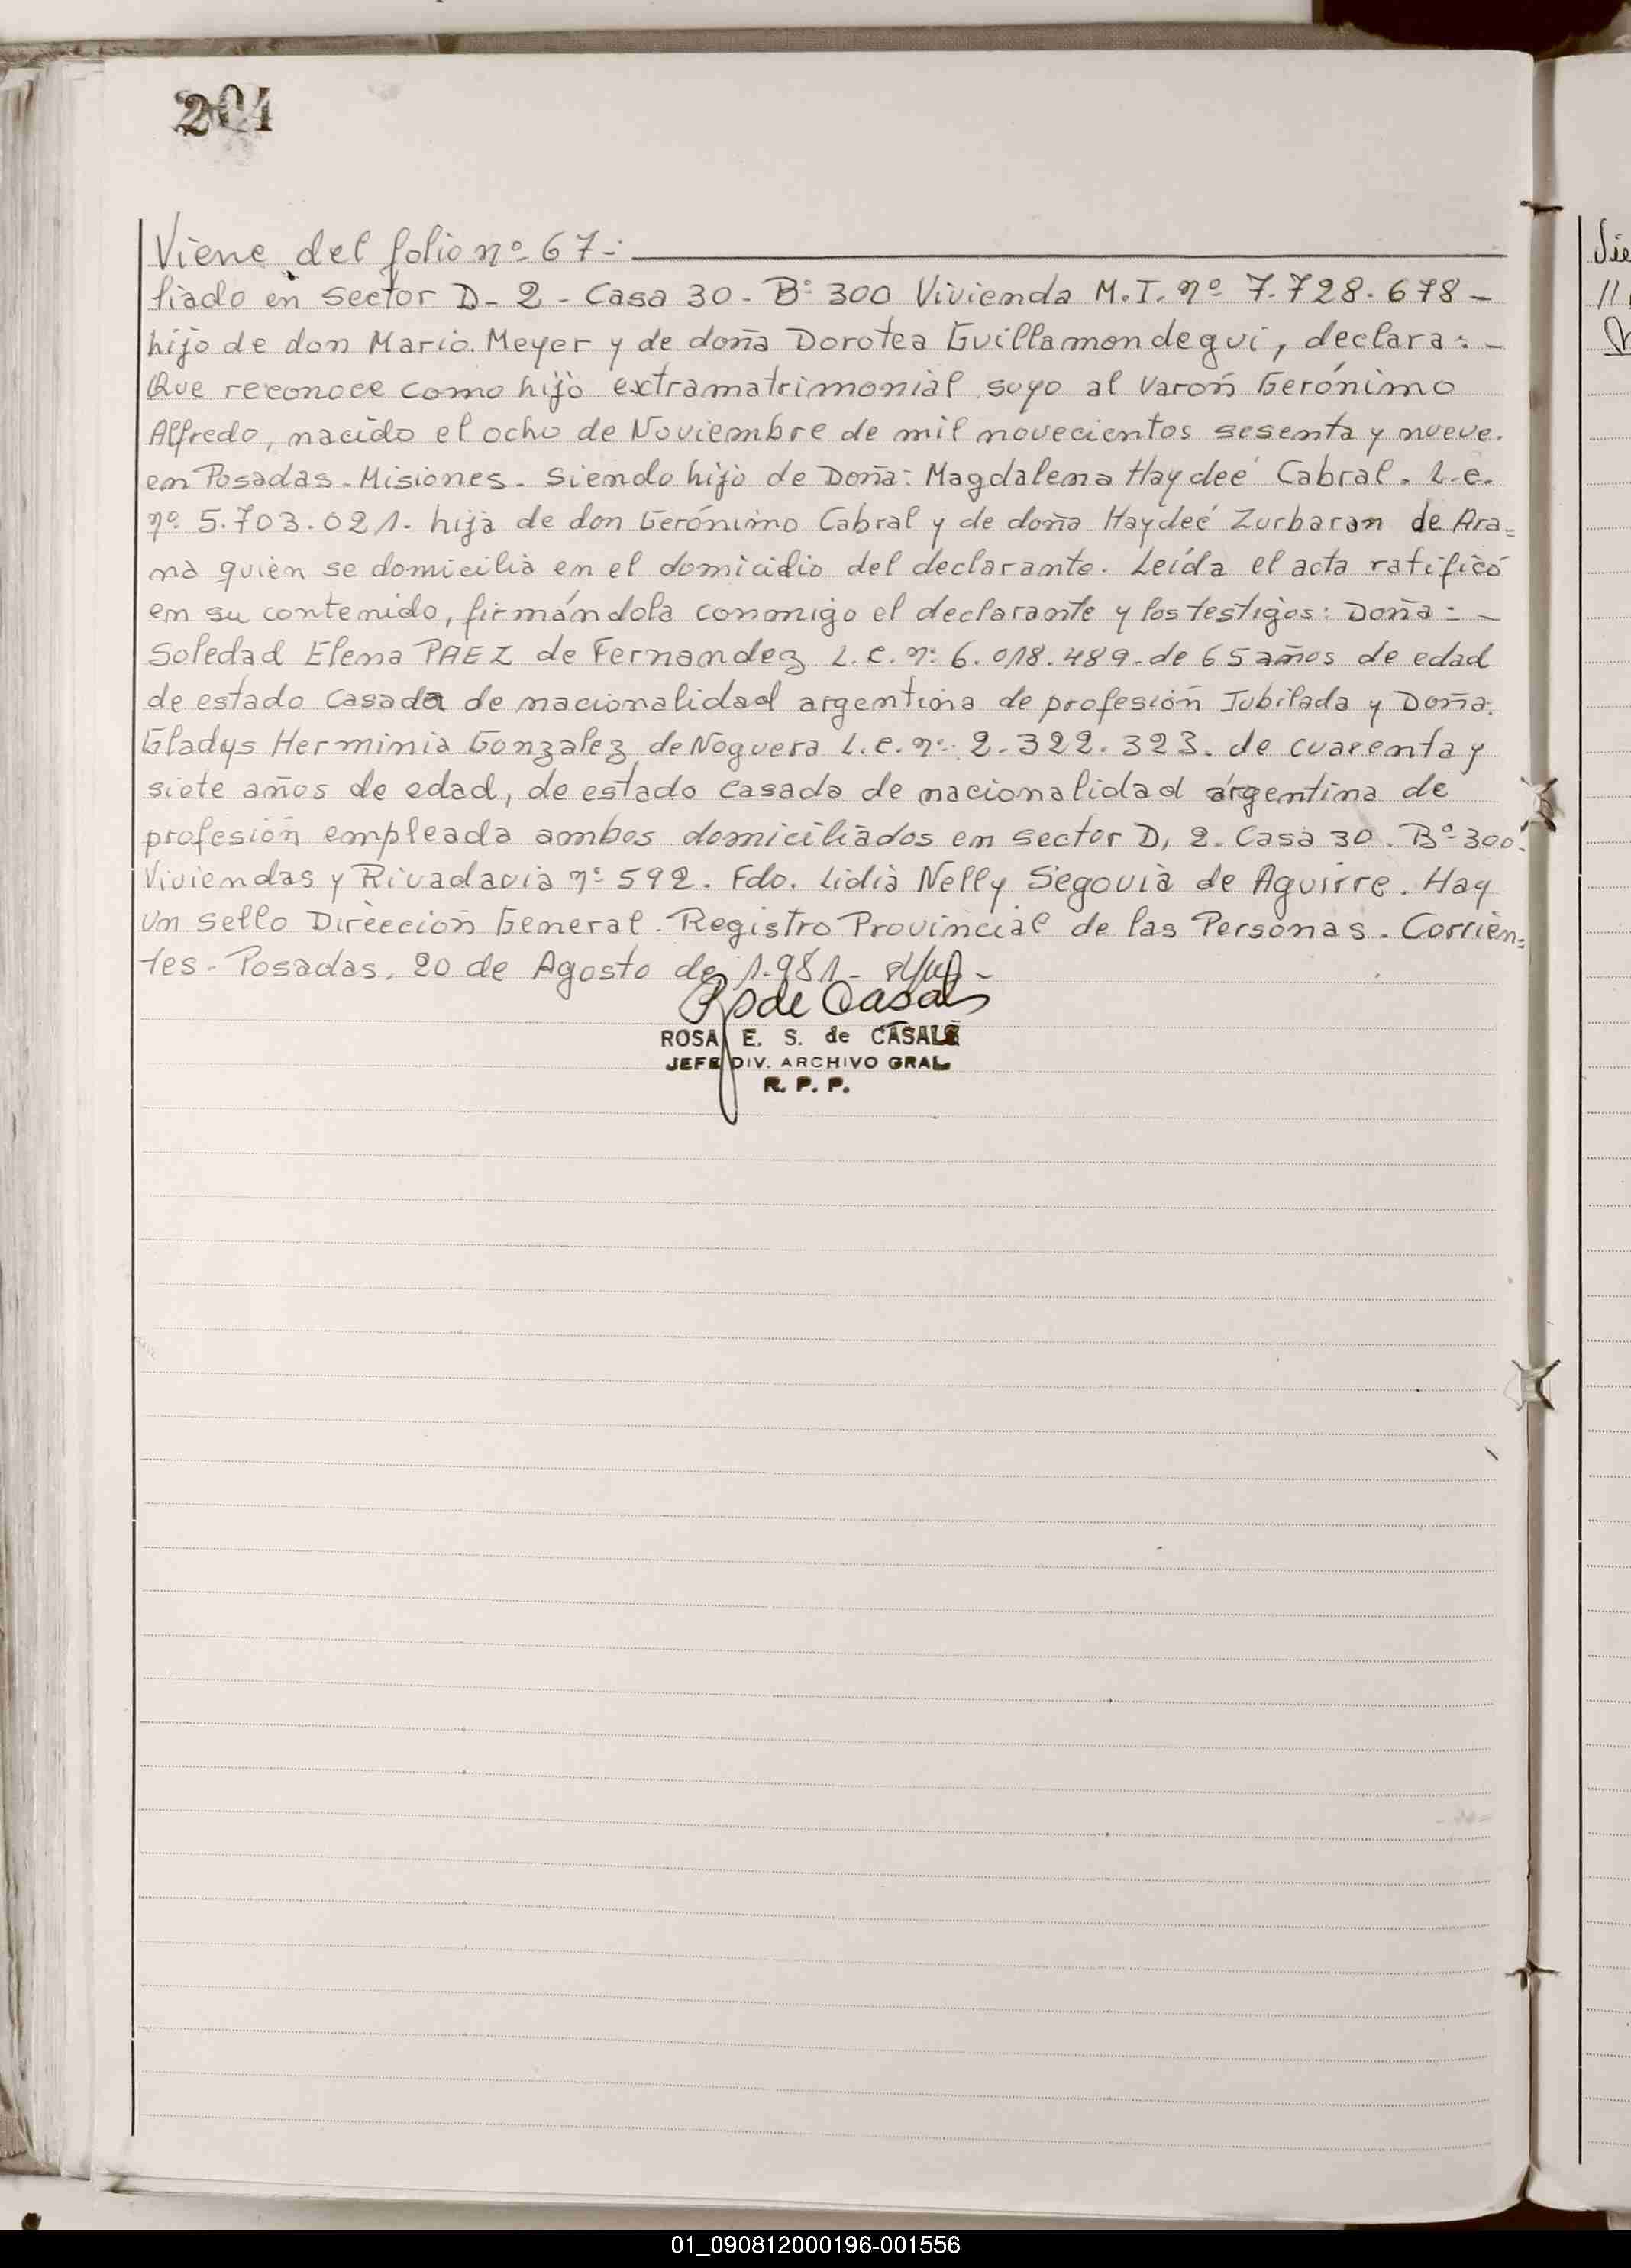 204
Viene del folio nº 67-
liado en Sector D- 2 - Casa 30 - Bº 300 Vivienda M.I. nº 7.728.678 -
hijo de don Mario Meyer y de doña Dorotea Guillamondegui, declara: -
Que reconoce como hijo extramatrimonial suyo al varon Gerónimo
Alfredo, nacido el ocho de Noviembre de mil novecientos sesenta y nueve.
en Posadas - Misiones - Siendo hijo de Doña: Magdalena Haydeé Cabral. L.C.
nº 5.703.021. hija de don Gerónimo Cabral y de doña Haydeé Zurbaran de Ara=
na quien se domicilia en el domicilio del declarante. Leída el acta ratificó
en su contenido, firmándola conmigo el declarante y los testigos: Doña: -
Soledad Elena PAEZ de Fernandez L.C. nº 6.018.489. de 65 años de edad
de estado casada de nacionalidad argentina de profesión Jubilada y Doña.
Gladys Herminia Gonzalez de Noguera L.C. nº 2.322.323. de cuarenta y
siete años de edad, de estado casada de nacionalidad argentina de
profesión empleada ambos domiciliados en sector D, 2. Casa 30. Bº 300.
Viviendas y Rivadavia nº 592. Fdo. Lidia Nelly Segovia de Aguirre. Hay
Un sello Dirección General. Registro Provincial de las Personas. Corrien=
tes. Posadas, 20 de Agosto de 1.981-
de Casals
ROSA E. S. de CASALS
JEFE DIV. ARCHIVO GRAL
R. P. P.
Vie
//
01_090812000196-001556